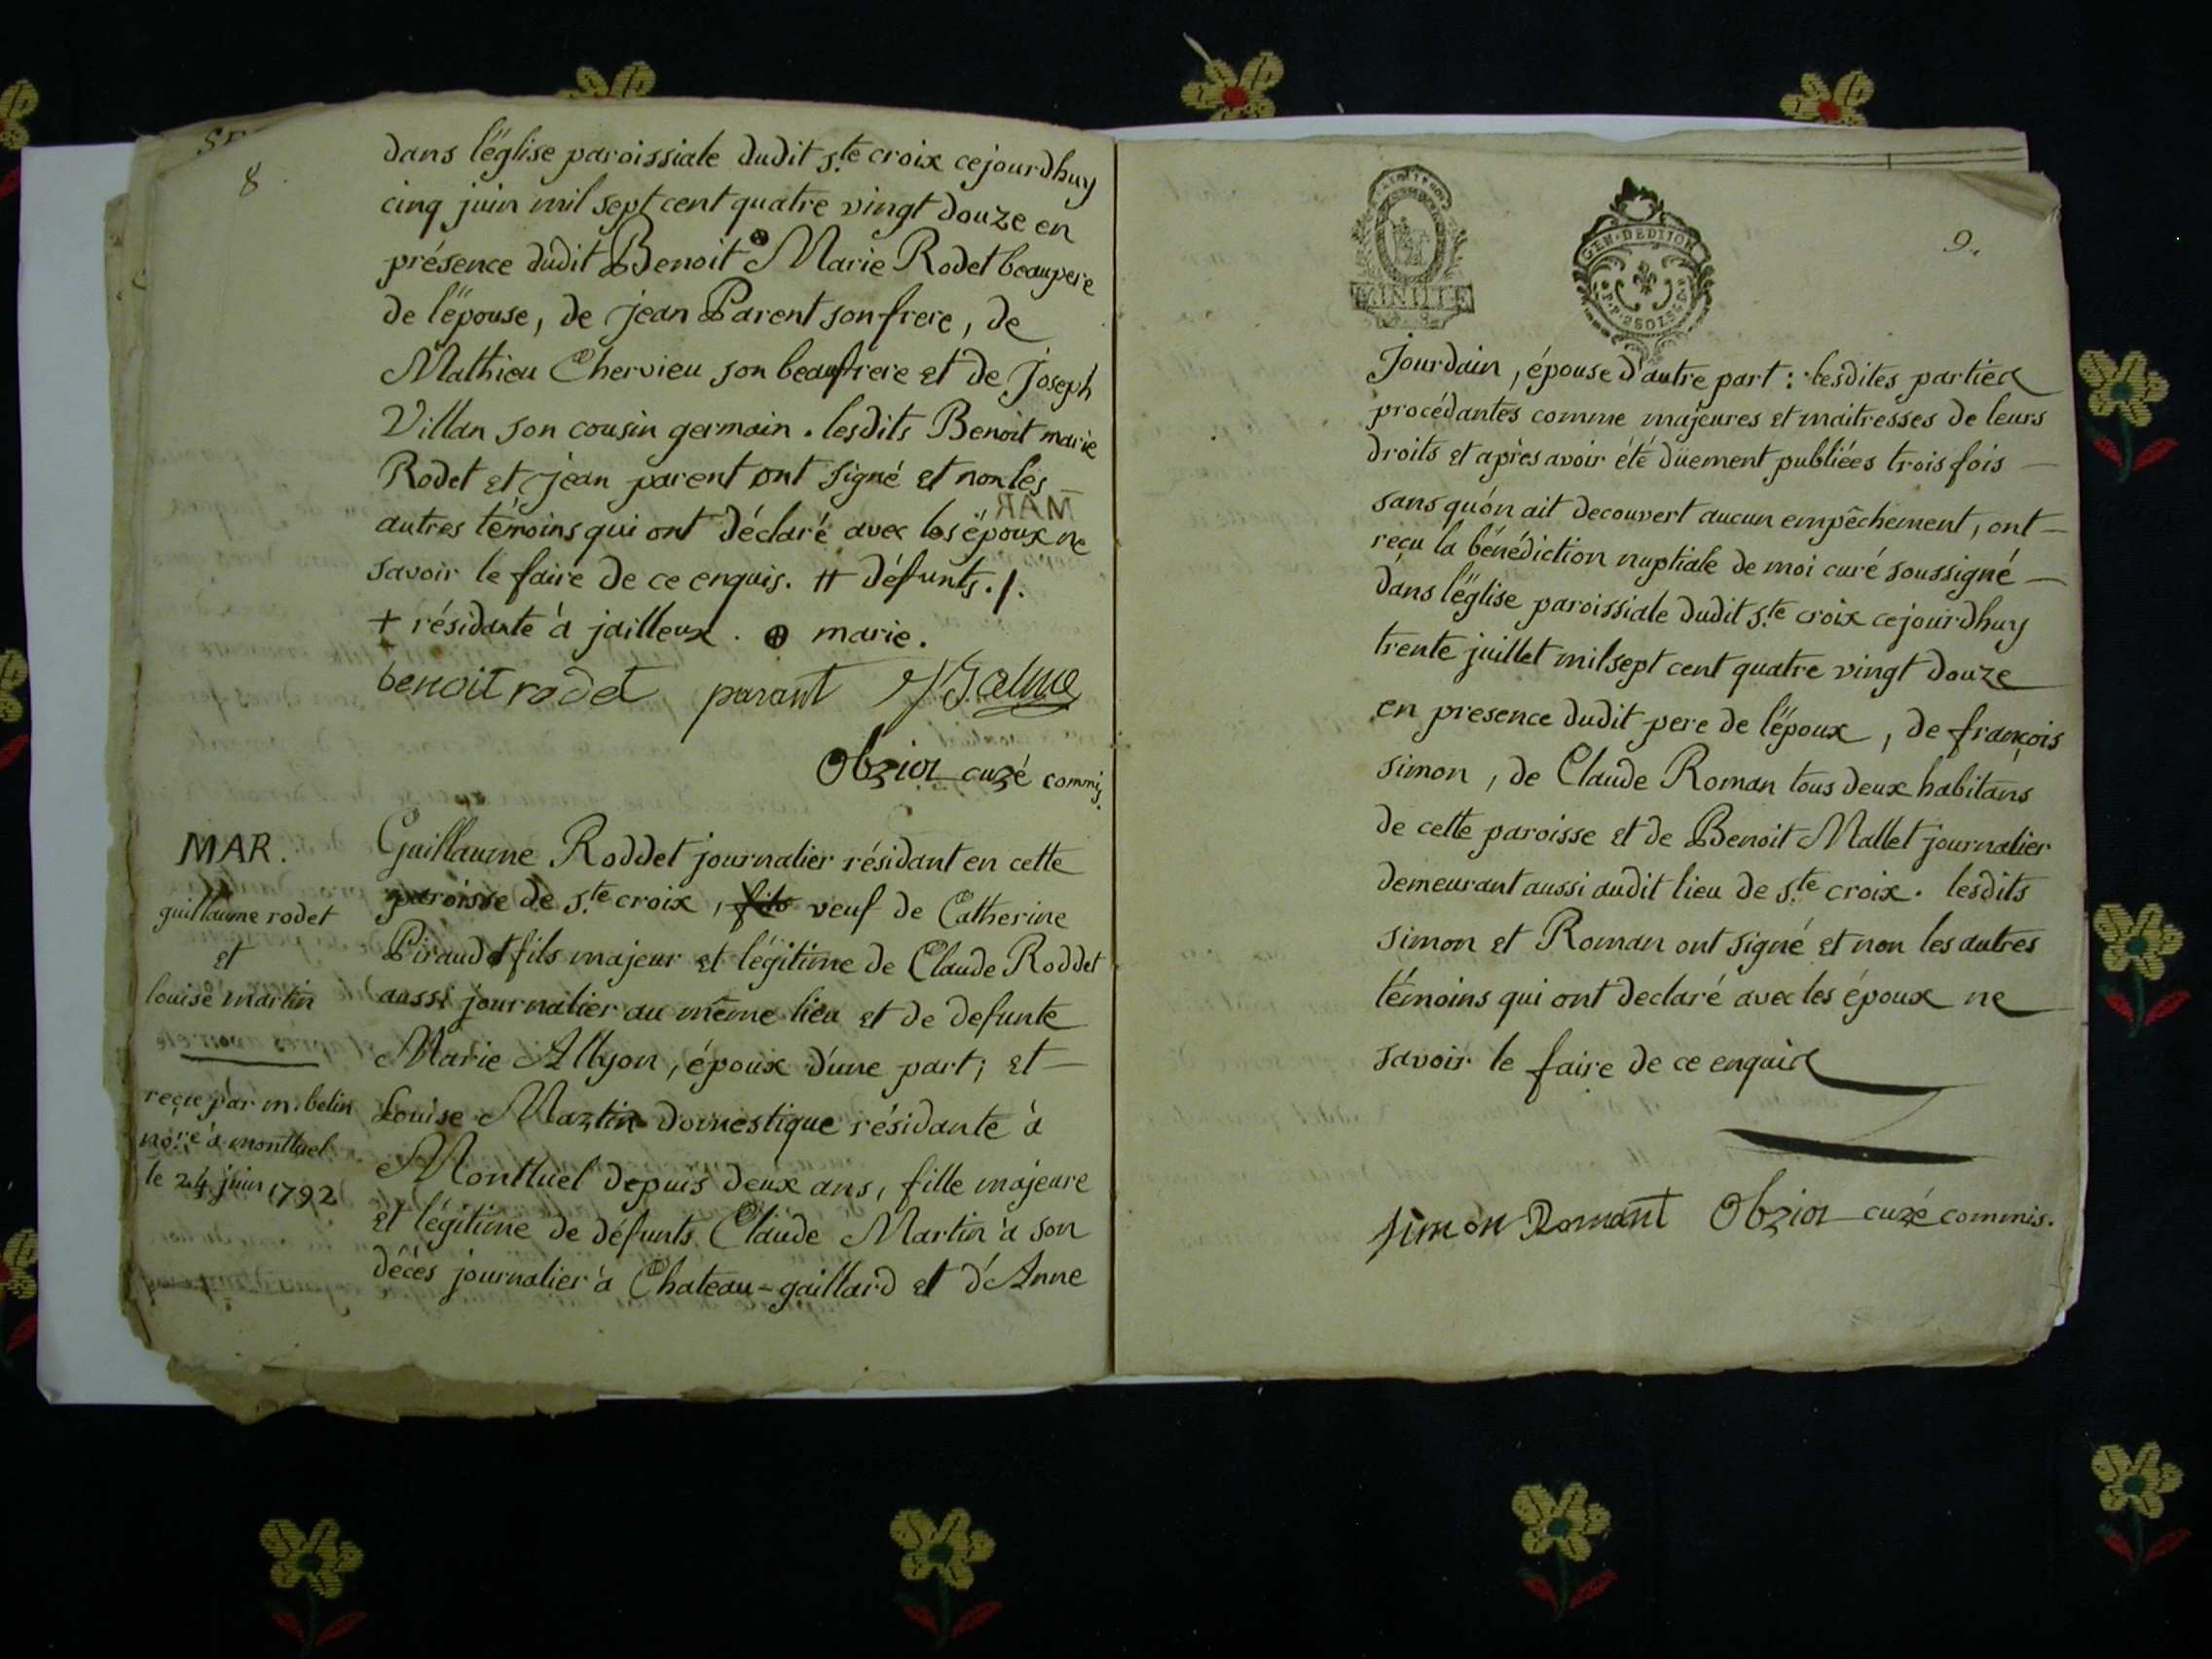 8.
dans l'église paroissiale dudit s.te croix cejourdhuy
cinq juin mil sept cent quatre vingt douze en
présence dudit Benoit ⊕ Marie Rodet beaupere
de l'épouse, de jean Parent son frere, de
Mathieu Chervieu son beaufrere et de Joseph
Villan son cousin germain. lesdits Benoit marie
Rodet et jean parent ont signé et non les
autres témoins qui ont déclaré avec les époux ne
savoir le faire de ce enquis. # défunts./.
+ résidante à jailleux. ⊕ marie.
benoit rodet parant
Obrier curé commis.
MAR.
guillaume rodet
et
louise martin
reçu par m. belin
no.re à montluel
le 24 juin 1792
Guillaume Roddet journalier résidant en cette
paroisse de s.te croix, fils veuf de Catherine
Piraud et fils majeur et légitime de Claude Roddet
aussi journalier au même lieu et de defunte
Marie Allyon, époux d'une part; et
Louise Martin domestique résidante à
Montluel depuis deux ans, fille majeure
et légitime de défunts Claude Martin à son
décès journalier à Chateau-gaillard et d'Anne
9.
GEN. DE DIJON
Jourdain, épouse d'autre part: lesdites parties
procédantes comme majeures et maitresses de leurs
droits et après avoir été düement publiées trois fois
sans qu'on ait decouvert aucun empêchement, ont
reçu la bénédiction nuptiale de moi curé soussigné
dans l'église paroissiale dudit s.te croix cejourdhuy
trente juillet mil sept cent quatre vingt douze
en presence dudit pere de l'époux, de françois
simon, de Claude Roman tous deux habitans
de cette paroisse et de Benoit Mallet journalier
demeurant aussi audit lieu de s.te croix. lesdits
simon et Roman ont signé et non les autres
témoins qui ont declaré avec les époux ne
savoir le faire de ce enquis
simon Romant Obrier curé commis.